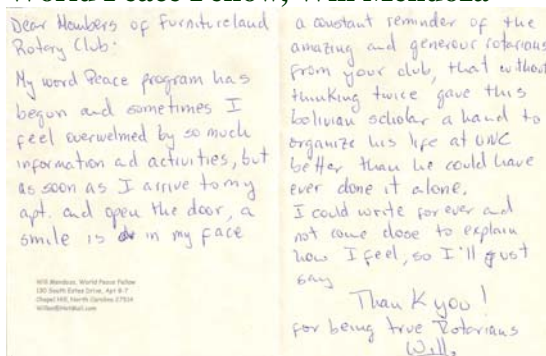 World Peace Fellow, Will Mendoza
Dear Members of Furnitureland
Rotary Club:
My word Peace program has
begun and sometimes I
feel overwelmed by so much
information ad activities, but
as soon as I arrive to my
apt. and open the door, a
smile is in my face
Will Mendoza, World Peace Fellow
Chapel Hill, North Carolina 27514
a constant reminder of the
amazing and generous rotarians
from your club, that without
thinking twice gave this
bolivian scholar a hand to
organize his life at UNC
better than he could have
ever done it alone.
I could write for ever and
not come close to explain
how I feel, so I'll just
say
Thank you!
for being true Rotarians
Will.